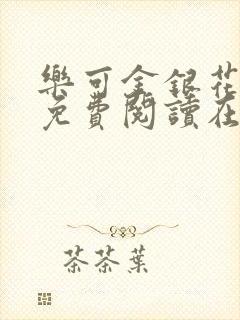 樂可金銀花
免費閱讀在
茶茶葉